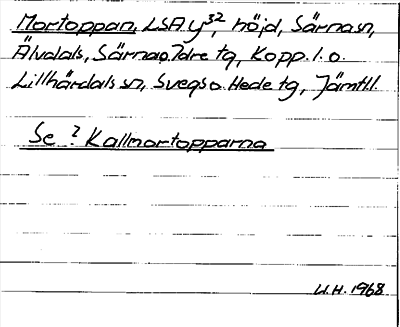 Mortoppan, LSA. y32, höjd, Särna sn,
Älvdals, Särna o. Idre tg, Kopp. l. o.
Lillhärdals sn, Svegs o. Hede tg, Jämtl. l.
Se ? Kallmortopparna
U.H. 1968